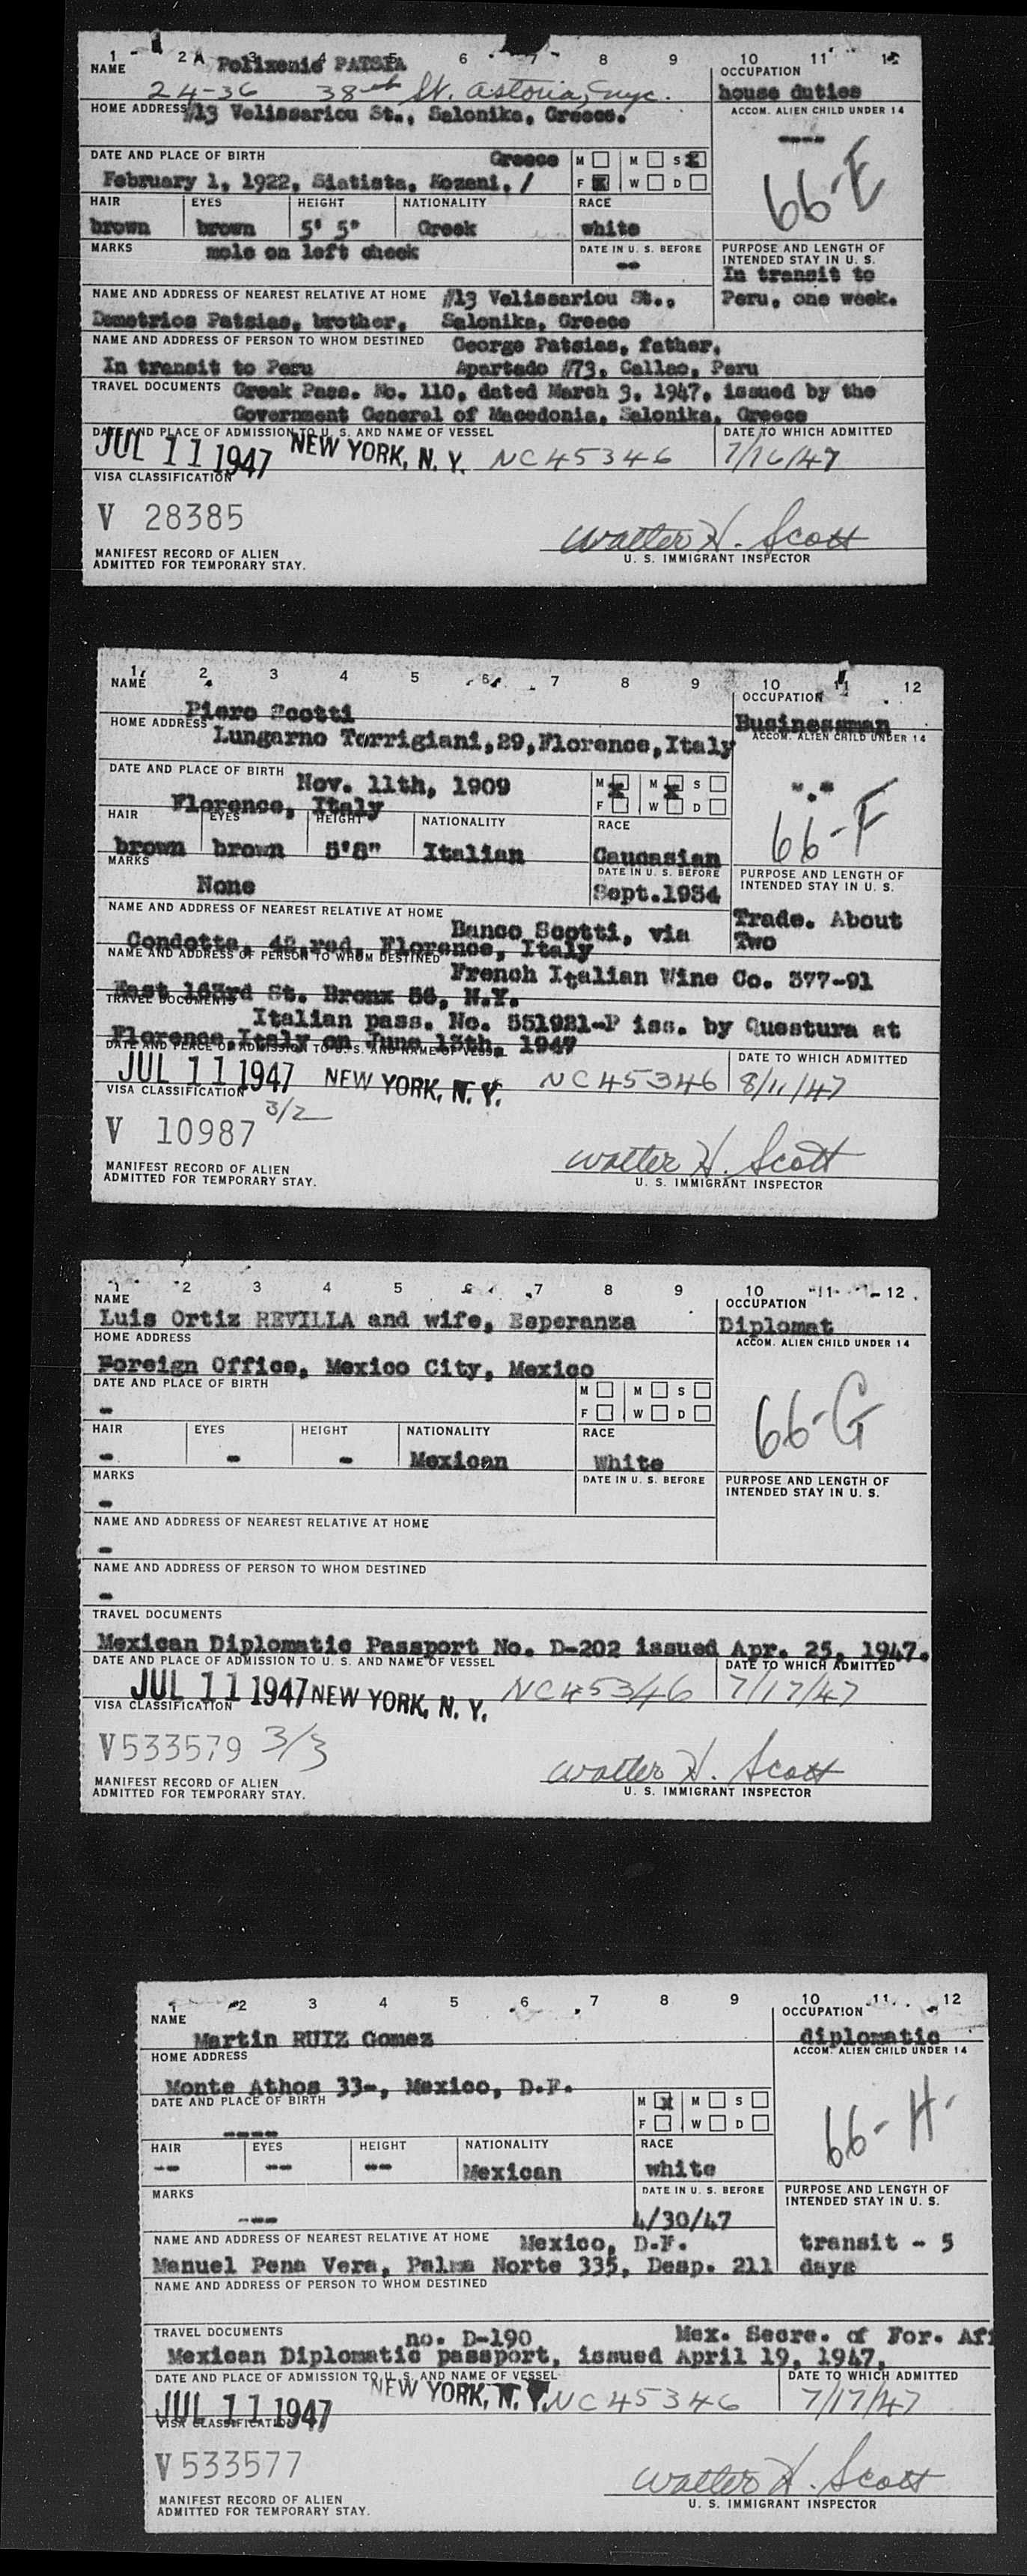 1 2 3 4 5 6 7 8 9 10 11 12
NAME A Polixenie PATSIA
OCCUPATION
24-36 38th St. Astoria, nyc.
house duties
HOME ADDRESS #13 Velissariou St., Salonika, Greece.
ACCOM. ALIEN CHILD UNDER 14
----
DATE AND PLACE OF BIRTH Greece M M S X
February 1, 1922, Siatista, Kozani, / F X W D
66-E
HAIR EYES HEIGHT NATIONALITY RACE
brown brown 5' 5" Greek white
MARKS mole on left cheek DATE IN U. S. BEFORE
--
PURPOSE AND LENGTH OF
INTENDED STAY IN U. S.
In transit to
Peru, one week.
NAME AND ADDRESS OF NEAREST RELATIVE AT HOME #13 Velissariou St.,
Demetrios Patsias, brother, Salonika, Greece
NAME AND ADDRESS OF PERSON TO WHOM DESTINED George Patsias, father,
In transit to Peru Apartado #73, Callao, Peru
TRAVEL DOCUMENTS Greek Pass. No. 110, dated March 3, 1947, issued by the
Government General of Macedonia, Salonika, Greece
DATE AND PLACE OF ADMISSION TO U. S. AND NAME OF VESSEL DATE TO WHICH ADMITTED
JUL 11 1947 NEW YORK, N. Y. NC45346 7/16/47
VISA CLASSIFICATION
V 28385
Walter H. Scott
MANIFEST RECORD OF ALIEN
ADMITTED FOR TEMPORARY STAY.
U. S. IMMIGRANT INSPECTOR
1 2 3 4 5 6 7 8 9 10 11 12
NAME
OCCUPATION
Piero Scotti
Businessman
HOME ADDRESS
Lungarno Torrigiani,29,Florence,Italy
ACCOM. ALIEN CHILD UNDER 14
DATE AND PLACE OF BIRTH Nov. 11th, 1909 M X M X S
Florence, Italy F W D
66-F
HAIR EYES HEIGHT NATIONALITY RACE
brown brown 5'8" Italian Caucasian
MARKS None DATE IN U. S. BEFORE
Sept.1934
PURPOSE AND LENGTH OF
INTENDED STAY IN U. S.
Trade. About
Two
NAME AND ADDRESS OF NEAREST RELATIVE AT HOME Banco Scotti, via
Condotta, 42,red, Florence, Italy
NAME AND ADDRESS OF PERSON TO WHOM DESTINED French Italian Wine Co. 377-91
East 163rd St. Bronx 56, N.Y.
TRAVEL DOCUMENTS Italian pass. No. 551921-P iss. by Questura at
Florence,Italy on June 13th, 1947
DATE AND PLACE OF ADMISSION TO U. S. AND NAME OF VESSEL DATE TO WHICH ADMITTED
JUL 11 1947 NEW YORK, N. Y. NC45346 8/11/47
VISA CLASSIFICATION 3/2
V 10987
Walter H. Scott
MANIFEST RECORD OF ALIEN
ADMITTED FOR TEMPORARY STAY.
U. S. IMMIGRANT INSPECTOR
1 2 3 4 5 6 7 8 9 10 11 12
NAME
OCCUPATION
Luis Ortiz REVILLA and wife, Esperanza
Diplomat
HOME ADDRESS
ACCOM. ALIEN CHILD UNDER 14
Foreign Office, Mexico City, Mexico
DATE AND PLACE OF BIRTH M M S
- F W D
66-G
HAIR EYES HEIGHT NATIONALITY RACE
- - - Mexican White
MARKS DATE IN U. S. BEFORE
-
PURPOSE AND LENGTH OF
INTENDED STAY IN U. S.
NAME AND ADDRESS OF NEAREST RELATIVE AT HOME
-
NAME AND ADDRESS OF PERSON TO WHOM DESTINED
-
TRAVEL DOCUMENTS
Mexican Diplomatic Passport No. D-202 issued Apr. 25, 1947.
DATE AND PLACE OF ADMISSION TO U. S. AND NAME OF VESSEL DATE TO WHICH ADMITTED
JUL 11 1947 NEW YORK, N. Y. NC45346 7/17/47
VISA CLASSIFICATION
V533579 3/3
Walter H. Scott
MANIFEST RECORD OF ALIEN
ADMITTED FOR TEMPORARY STAY.
U. S. IMMIGRANT INSPECTOR
1 2 3 4 5 6 7 8 9 10 11 12
NAME
OCCUPATION
Martin RUIZ Gomez
diplomatic
HOME ADDRESS
ACCOM. ALIEN CHILD UNDER 14
Monte Athos 33-, Mexico, D.F.
DATE AND PLACE OF BIRTH M X M S
---- F W D
66-H-
HAIR EYES HEIGHT NATIONALITY RACE
-- -- -- Mexican white
MARKS DATE IN U. S. BEFORE
--- 4/30/47
PURPOSE AND LENGTH OF
INTENDED STAY IN U. S.
transit - 5
days
NAME AND ADDRESS OF NEAREST RELATIVE AT HOME Mexico, D.F.
Manuel Pena Vera, Palma Norte 335, Desp. 211
NAME AND ADDRESS OF PERSON TO WHOM DESTINED
TRAVEL DOCUMENTS no. D-190 Mex. Secre. of For. Aff
Mexican Diplomatic passport, issued April 19, 1947,
DATE AND PLACE OF ADMISSION TO U. S. AND NAME OF VESSEL DATE TO WHICH ADMITTED
JUL 11 1947 NEW YORK, N. Y. NC45346 7/17/47
VISA CLASSIFICATION
V533577
Walter H. Scott
MANIFEST RECORD OF ALIEN
ADMITTED FOR TEMPORARY STAY.
U. S. IMMIGRANT INSPECTOR